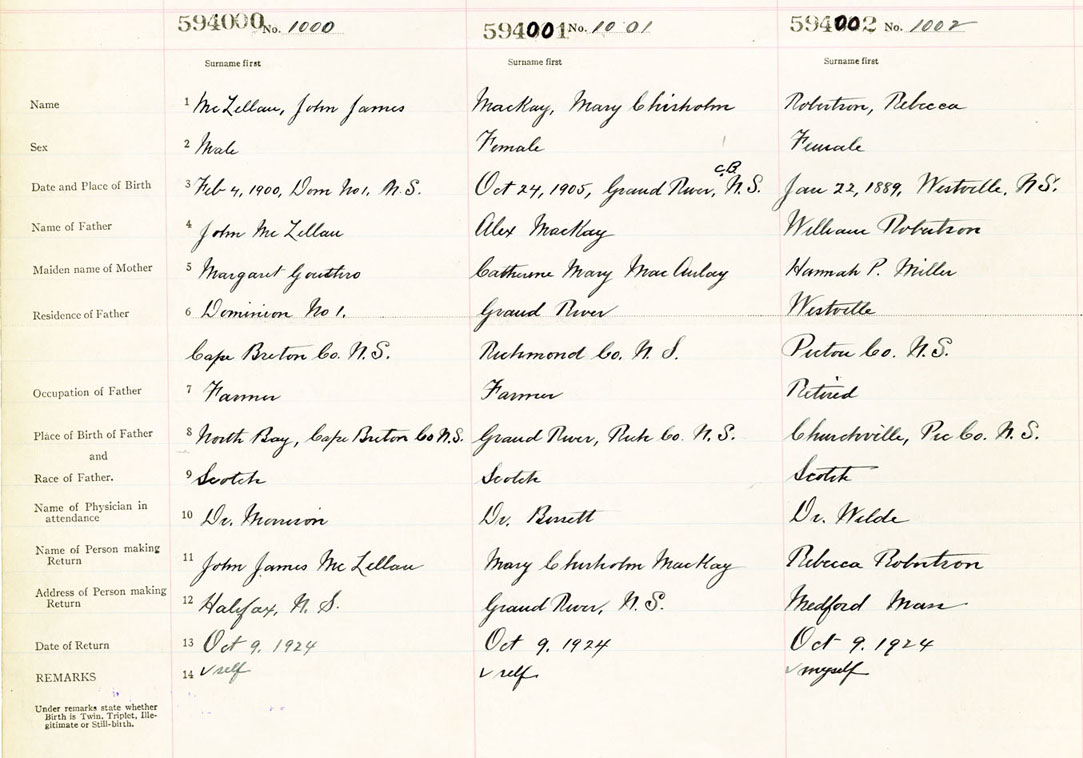 594000 No. 1000 594001 No. 1001 594002 No. 1002
Surname first Surname first Surname first
Name 1 McLellan, John James MacKay, Mary Chisholm Robertson, Rebecca
Sex 2 Male Female Female
C.B.
Date and Place of Birth 3 Feb 4, 1900, Dom No 1, N.S. Oct 24, 1905, Grand River, N.S. Jan 22, 1889, Westville, N.S.
Name of Father 4 John McLellan Alex MacKay William Robertson
Maiden name of Mother 5 Margaret Gouthro Catherine Mary MacAulay Hannah P. Miller
Residence of Father 6 Dominion No 1. Grand River Westville
Cape Breton Co. N.S. Richmond Co. N.S. Pictou Co. N.S.
Occupation of Father 7 Farmer Farmer Retired
Place of Birth of Father 8 North Bay, Cape Breton Co N.S. Grand River, Rich Co. N.S. Churchville, Pic Co. N.S.
and
Race of Father. 9 Scotch Scotch Scotch
Name of Physician in
attendance 10 Dr. Morrison Dr. Bissett Dr. Wilde
Name of Person making
Return 11 John James McLellan Mary Chisholm MacKay Rebecca Robertson
Address of Person making
Return 12 Halifax, N.S. Grand River, N.S. Medford Mass
Date of Return 13 Oct 9. 1924 Oct 9. 1924 Oct 9. 1924
REMARKS 14 ✓ self ✓ self ✓ myself
Under remarks state whether
Birth is Twin, Triplet, Ille-
gitimate or Still-birth.